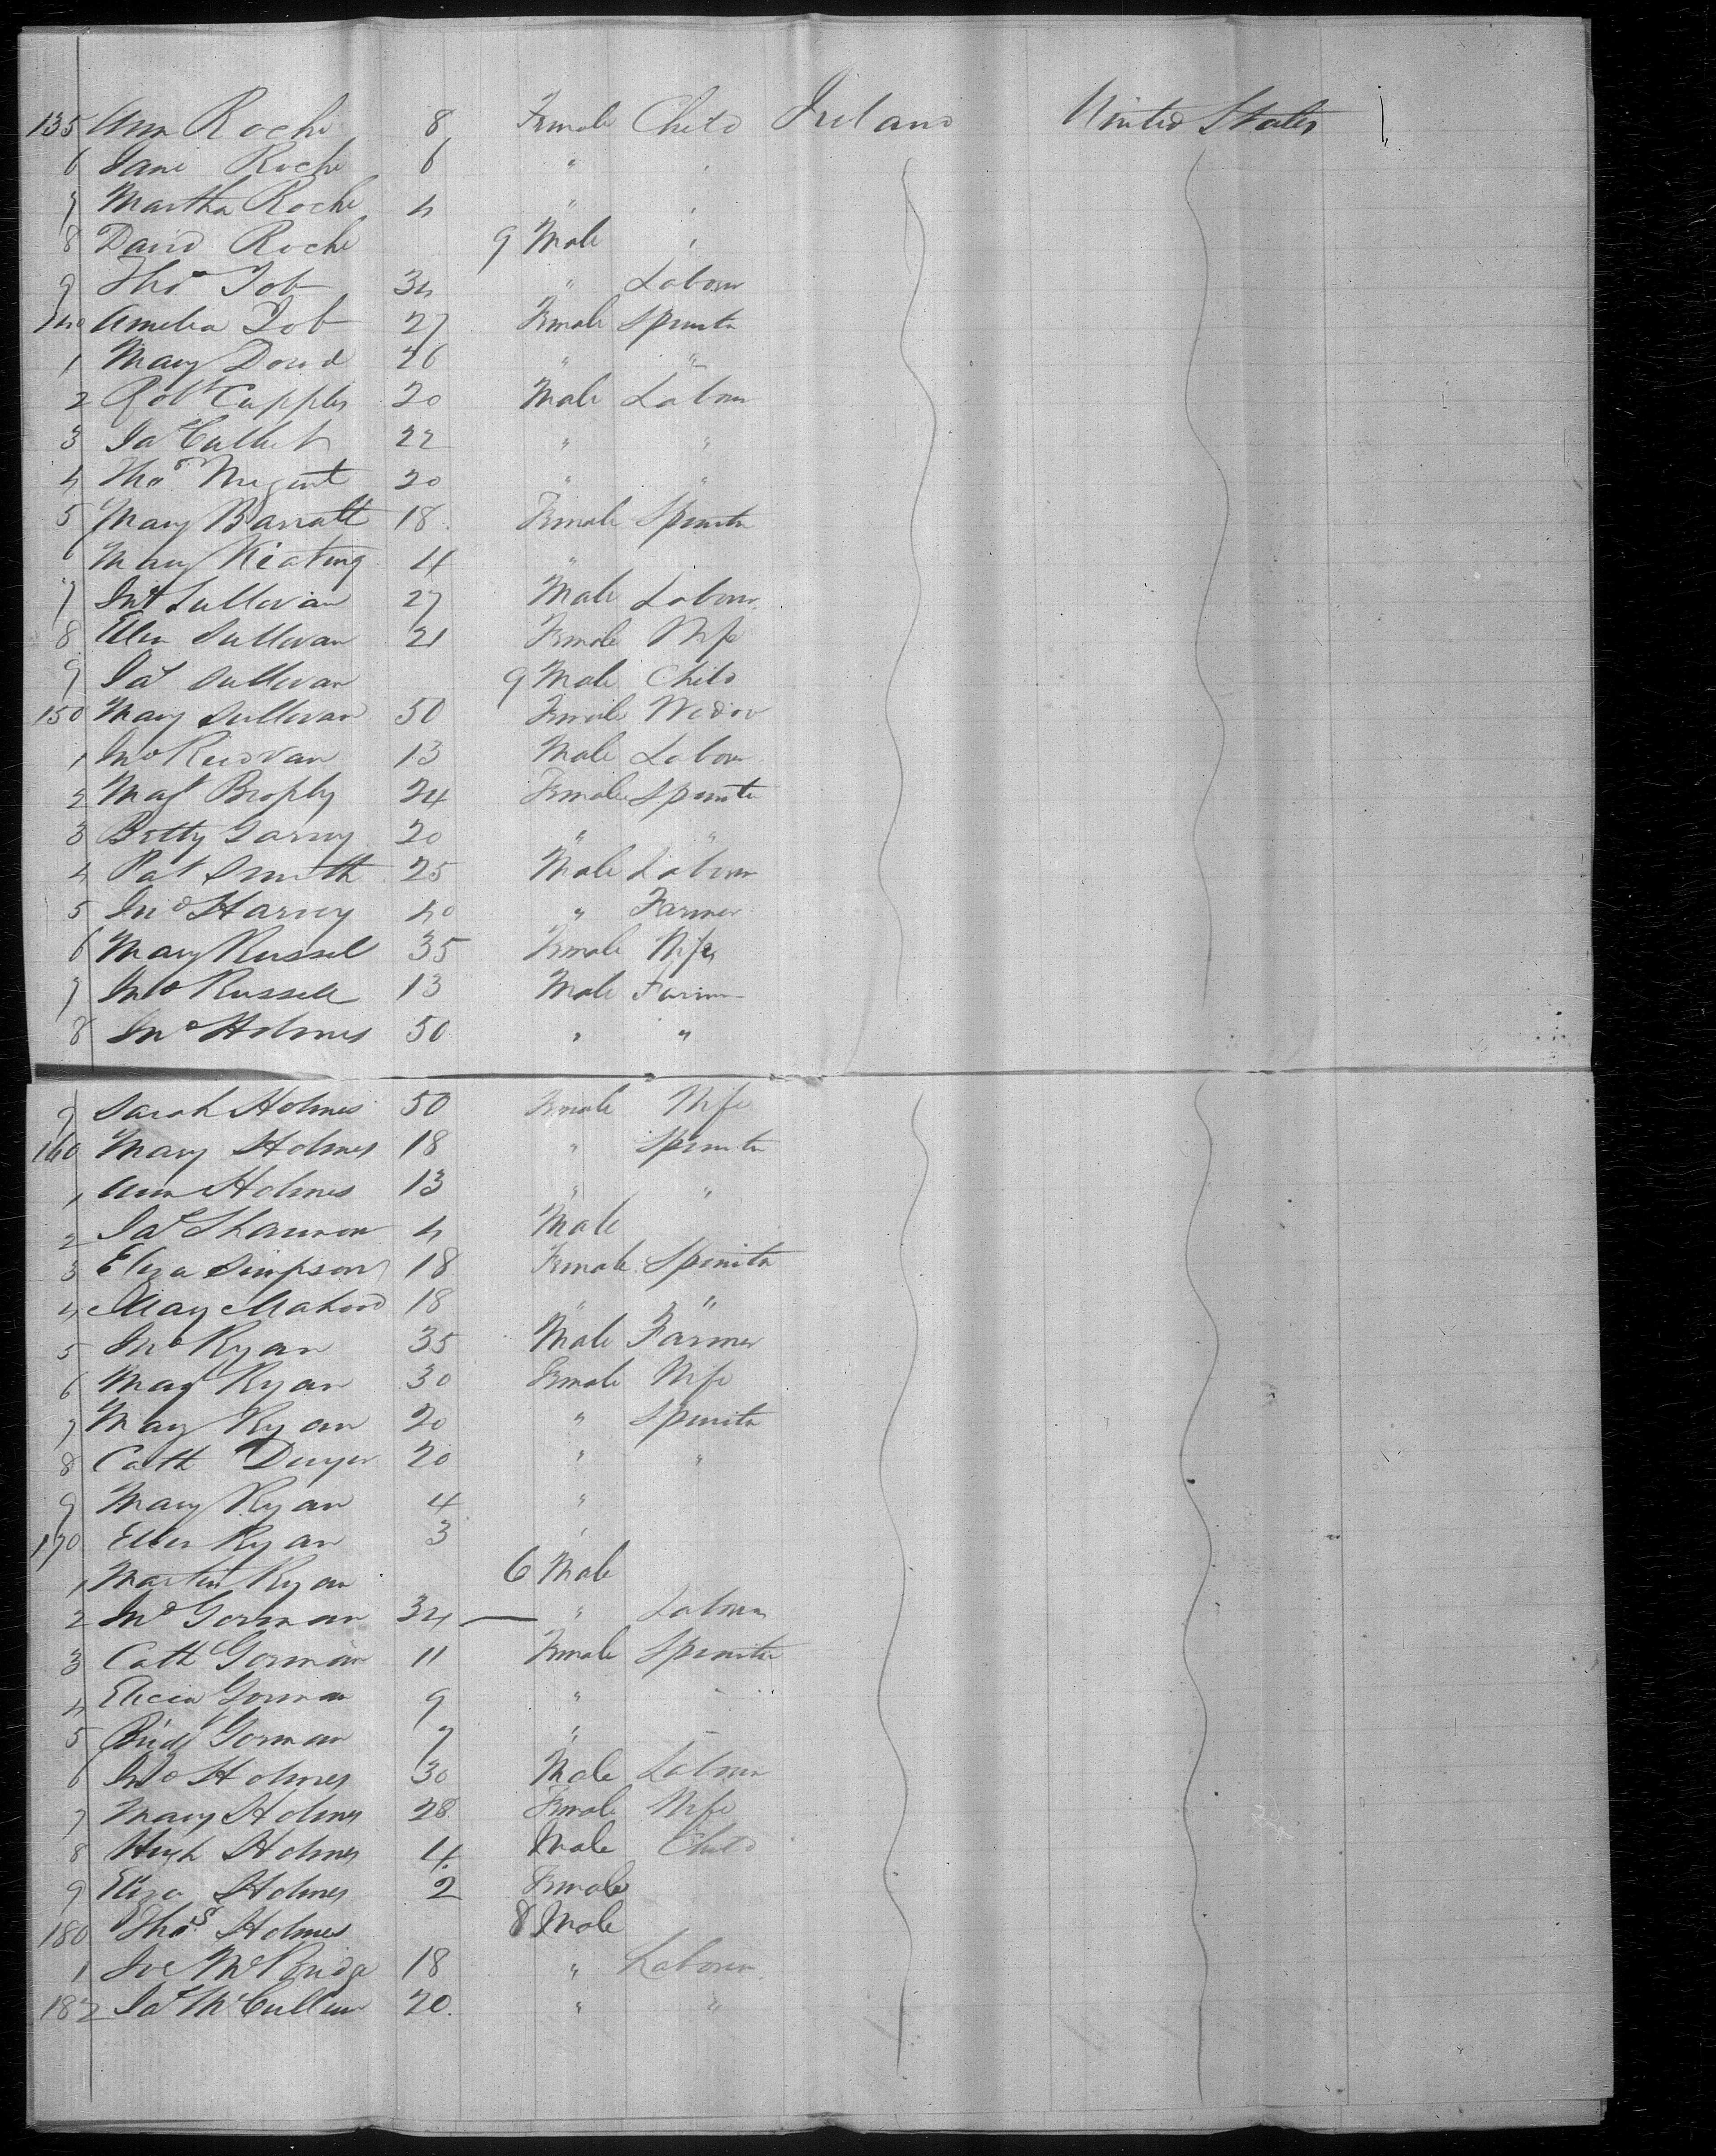 135 Ann Roche 8 Female Child Ireland United States
6 Jane Roche 6 " "
7 Martha Roche 4 " "
8 David Roche 9 Male "
9 Thos Tob 34 " Labour
140 Amelia Tob 27 Female Spinstr
1 Mary Dowd 26 " "
2 Robt Cupples 20 Male Labour
3 Jas 22 " "
4 Thos Nugent 20 " "
5 Mary Barratt 18 Female Spinstr
6 Mary Keating 4 "
7 Jno Sullivan 27 Male Labour
8 Ellen Sullivan 21 Female Wife
9 Jas Sullivan 9 Male Child
150 Mary Sullivan 50 Female Widow
1 Jno 13 Male Labour
2 Magt Brophy 24 Female Spinstr
3 Betty Garvey 20 " "
4 Pat Smith 25 Male Labour
5 Jno Harvey 40 " Farmer
6 Mary Russel 35 Female Wife
7 Jno Russell 13 Male Farmer
8 Jno Holmes 50 " "
9 Sarah Holmes 50 Female Wife
160 Mary Holmes 18 " Spinstr
1 Ann Holmes 13 " "
2 Jas Shannon 4 Male
3 Eliza Simpson 18 Female Spinstr
4 May 18 " "
5 Jno Ryan 35 Male Farmer
6 Magt Ryan 30 Female Wife
7 Mary Ryan 20 " Spinstr
8 Cath Dwyer 20 " "
9 Mary Ryan 4 "
170 Ellen Ryan 3 "
1 Martin Ryan 6 Male
2 Jno Gorman 34 — " Labour
3 Cath Gorman 11 Female Spinstr
4 Elicia Gorman 9 " "
5 Bridt Gorman 7 "
6 Jno Holmes 30 Male Labour
7 Mary Holmes 28 Female Wife
8 Hugh Holmes 4 Male Child
9 Eliza Holmes 2 Female
180 Thos Holmes 8 Male
1 18 " Labour
182 Jas McCullum 20 " "